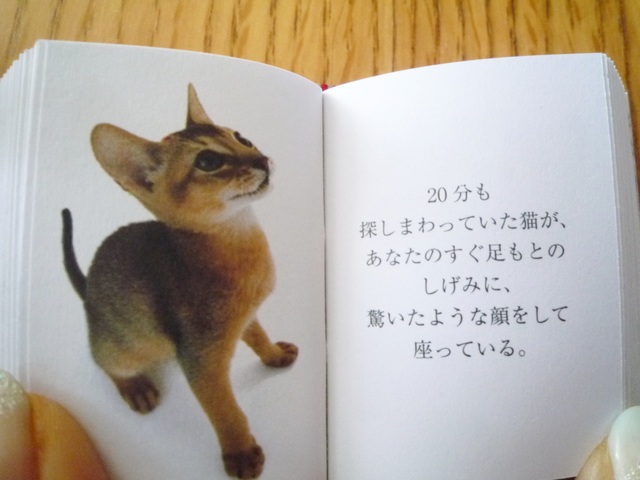 20分も
探しまわっていた猫が、
あなたのすぐ足もとの
しげみに、
驚いたような顔をして
座っている。